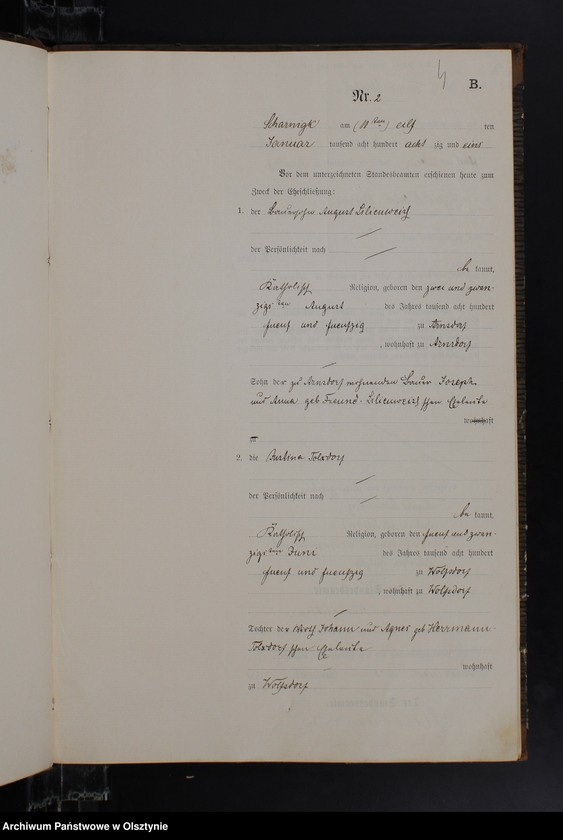 B.
Nr. 2
Scharnigk am (11ten) elf ten
Januar tausend acht hundert acht zig und eins
Vor dem unterzeichneten Standesbeamten erschienen heute zum
Zweck der Eheschließung:
1. der Bauersohn August Lilienweiß
der Persönlichkeit nach
be kannt,
Katholisch Religion, geboren den zwei und zwan-
zigsten August des Jahres tausend acht hundert
fuenf und fuenfzig zu Arnsdorf
, wohnhaft zu Arnsdorf
Sohn der zu Arnsdorf wohnenden Bauer Joseph
und Anna geb Freund-Lilienweiß schen Eheleute
wohnhaft
zu
2. die Tolxdorf
der Persönlichkeit nach
be kannt,
Katholisch Religion, geboren den fuenf und zwan-
zigsten Juni des Jahres tausend acht hundert
fuenf und fuenfzig zu Wolfsdorf
, wohnhaft zu Wolfsdorf
Tochter der Wirth Johann und Agnes geb Herrmann-
Tolxdorf schen Eheleute
wohnhaft
zu Wolfsdorf
Archiwum Państwowe w Olsztynie